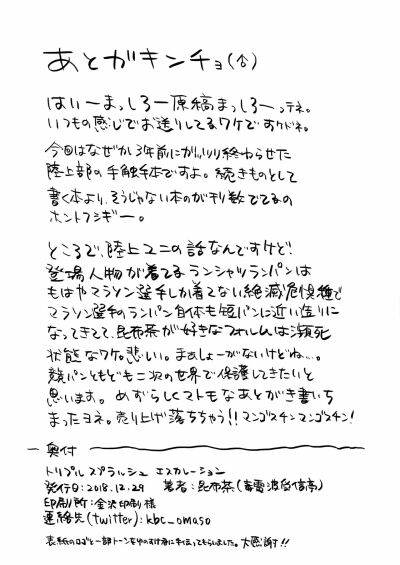 あとがキンチョ(↑)
はいーまっしろー原稿まっしろーってネ。
いつもの感じでお送りしてるワケですケドネ。
今回はなぜか3年前にガッツリ終わらせた
陸上部の手触本ですよ。続きものとして
書く本より、そうじゃない本のが刊数でてるの
ホントフシギー。
ところで、陸上ユニの話なんですけど!
登場人物が着てるランシャツランパンは
もはやマラソン選手しか着てない絶滅危惧種で
マラソン選手のランパン自体も短パンに近い造りに
なってきてて、昆布茶が好きなフォルムは瀕死
状態なワケね悲しい。まぁしょーがないけどね…。
競パンともども二次の世界で保護してきたいと
思います。めずらしくマトモなあとがき書いち
まったヨネ。売り上げ落ちちゃう!!マンゴスチンマンゴスチン!
奥付
トリプル スプラルシュ エスカレーション
発行日:2018.12.29 著者:昆布茶(蓄電波発信亭)
印刷所:金沢印刷様
連絡先(twitter):kbc_omaso
表紙のロゴと一部トーンを中のすけ君に手伝ってもらいました。大感謝!!